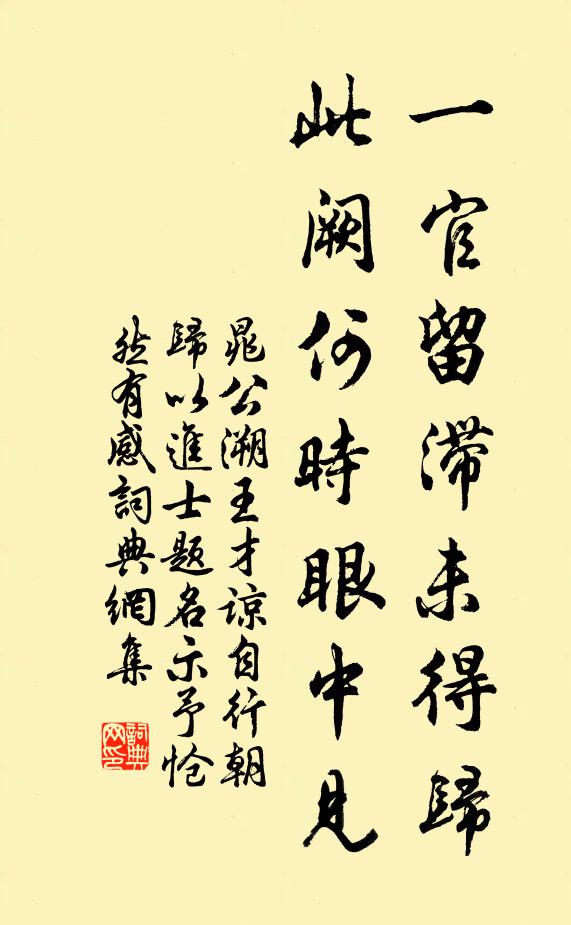 一官留滞未得歸
此阙何時眼中見
晁公溯王才諒自行朝
歸以進士题名示予怆
然有感詞典網集
詞典
网印